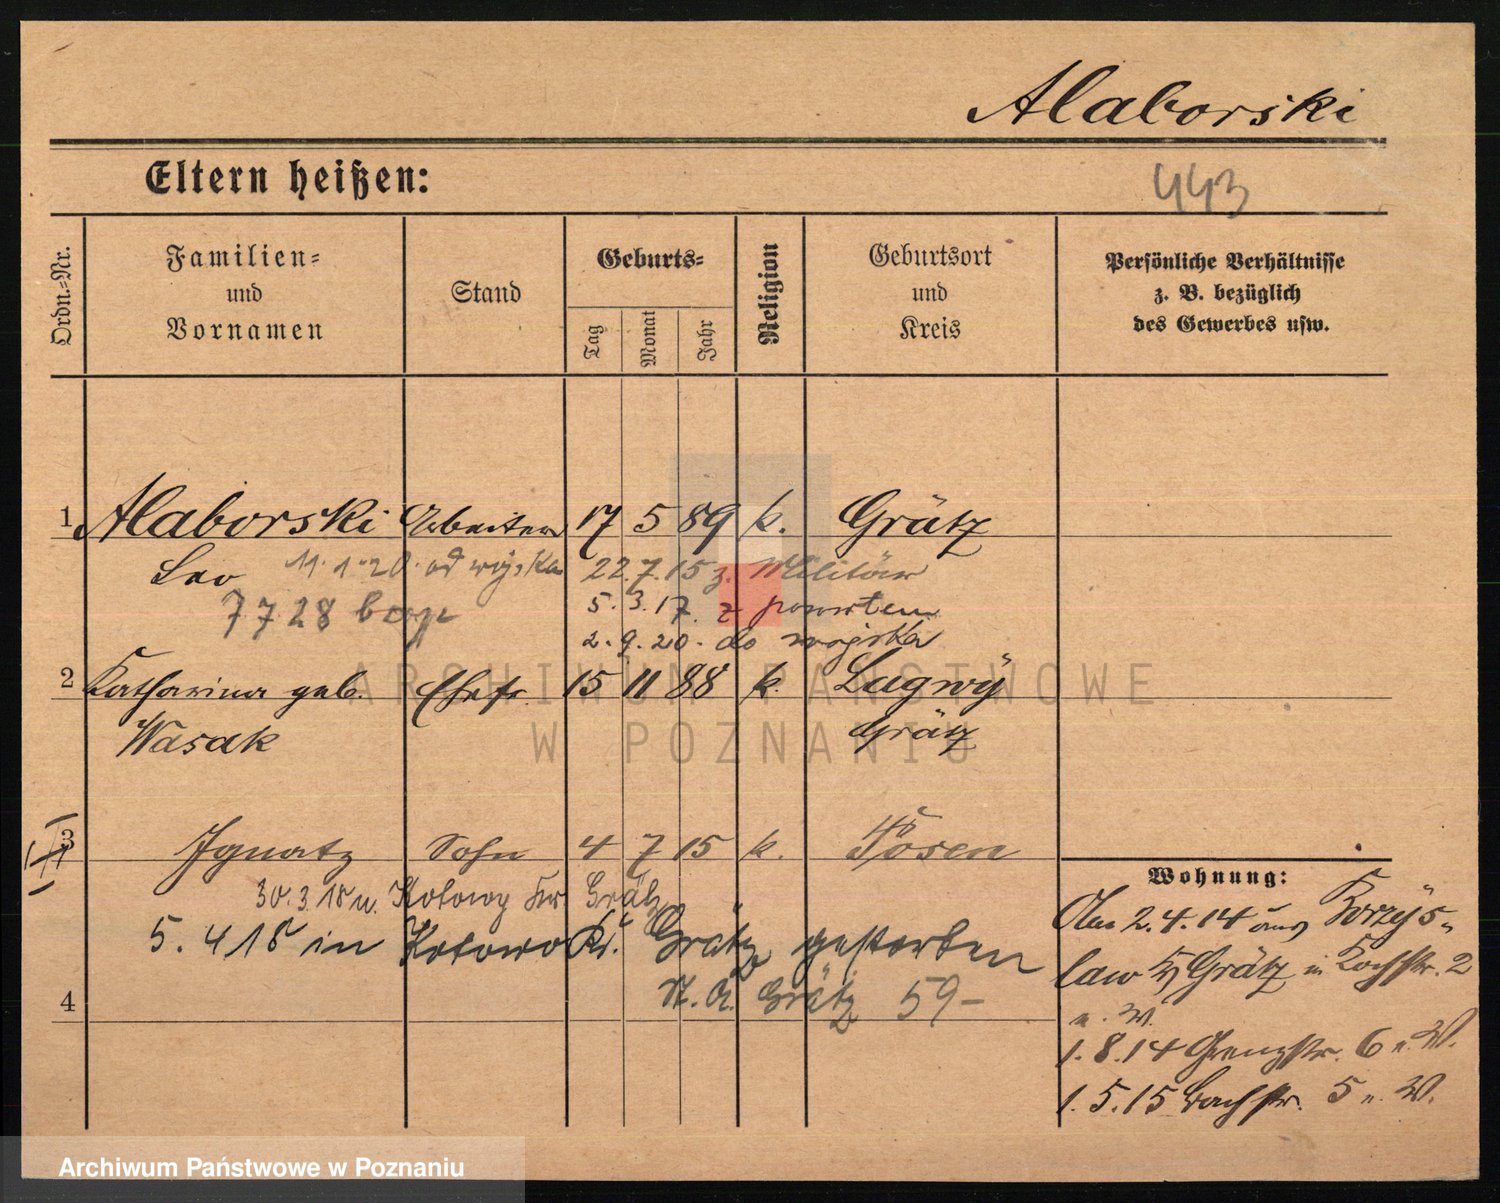 Alaborski
Eltern heißen:
443
Ordn.-Nr.
Familien-
und
Vornamen
Stand
Geburts-
Tag
Monat
Jahr
Religion
Geburtsort
und
Kreis
Persönliche Verhältnisse
z. B. bezüglich
des Gewerbes usw.
1 Alaborski Arbeiter 17 5 89 k. Grätz
Leo 11.1.20. od wojska 22.7.15 z. Militär
7 7 28 5.3.17. z powrotem
2.9.20. do wojska
2 Katharina geb. Ehefr. 15 11 88 k. Lagwy
Wasak Grätz
ARCHIWUM PAŃSTWOWE
W POZNANIU
3 Ignatz Sohn 4 7 15 k. Posen
30.3.18 n. Kotowo Kr. Grätz
5.4 18 in Kotowo Kr. Grätz gestorben
St. A. Grätz 59-
4
Wohnung:
2.4.14 aus
Grätz in Kochstr. 2
u. W.
1.8.14 Grenzstr. 6 u. W.
1.5.15 Bachstr. 5 u. W.
Archiwum Państwowe w Poznaniu